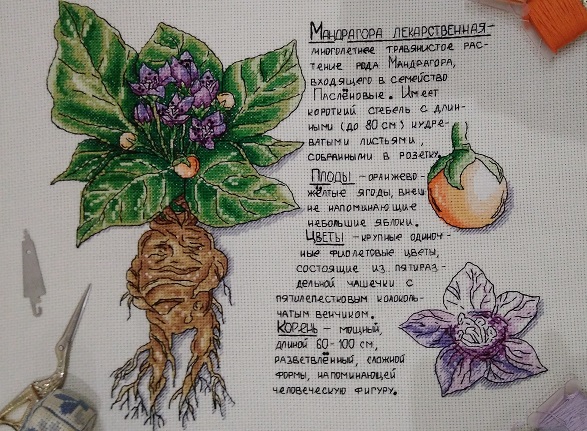 Мандрагора лекарственная-
многолетнее травянистое рас-
тение рода Мандрагора,
входящего в семейство
Паслёновые. Имеет
короткий стебель с длин-
ными (до 80 см) кудре-
ватыми листьями,
собранными в розетку.
Плоды - оранжево-
жёлтые ягоды, внеш-
не напоминающие
небольшие яблоки.
Цветы - крупные одиноч-
ные фиолетовые цветы,
состоящие из пятираз-
дельной чашечки с
пятилепестковым колоколь-
чатым венчиком.
Корень - мощный,
длиной 60-100 см,
разветвлённый, сложной
формы, напоминающей
человеческую фигуру.